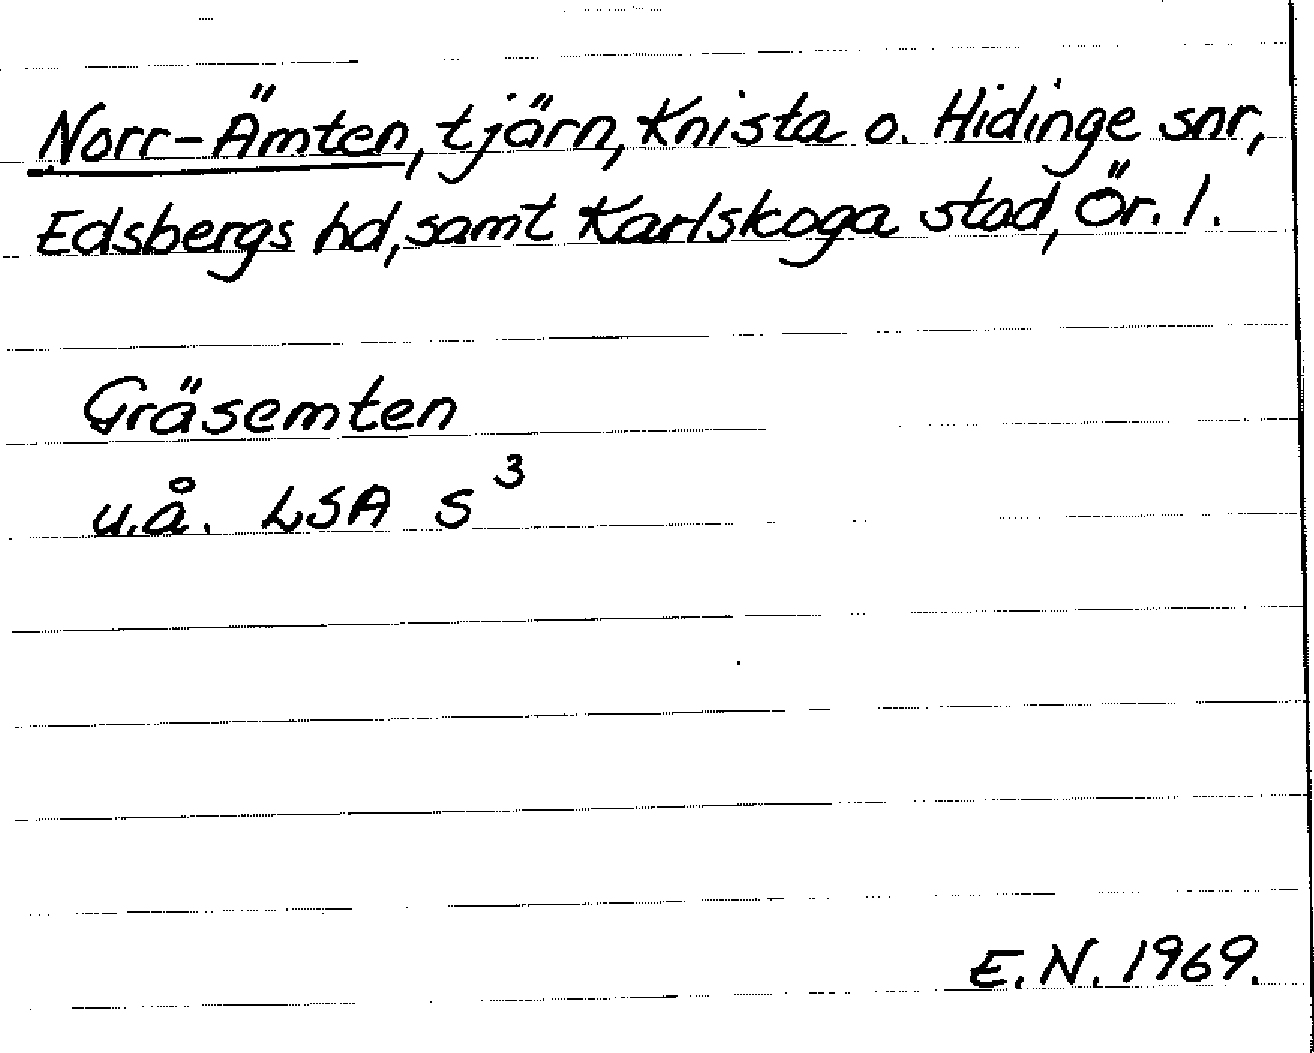 Norr-Ämten, tjärn, Knista o. Hidinge snr,
Edsbergs hd, samt Karlskoga stad, Ör. l.
Gräsemten
u.å. LSA S 3
E.N. 1969.